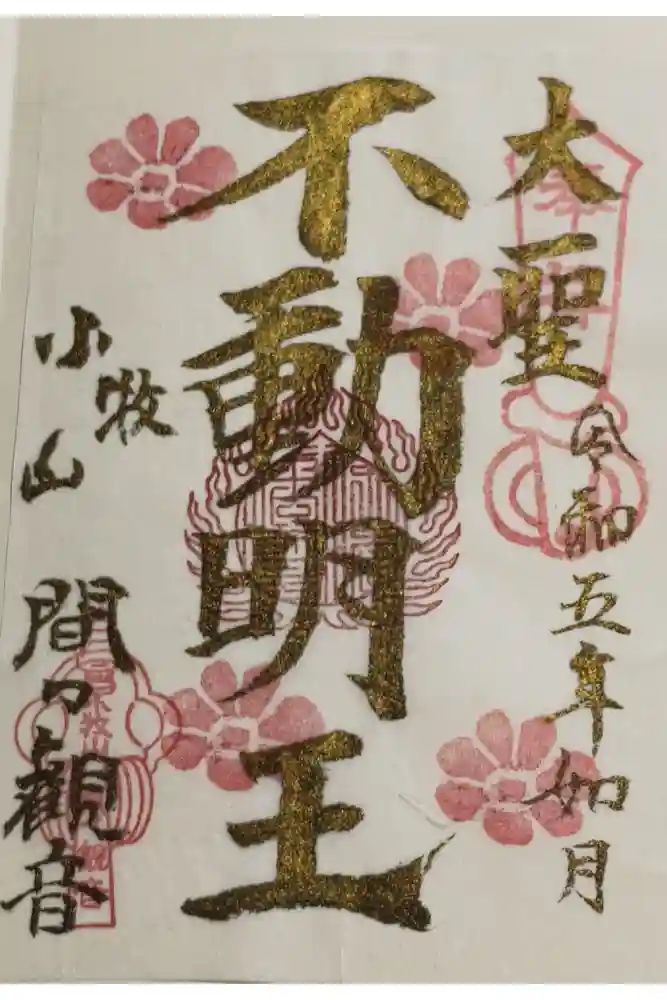 奉拝
大聖
令和五年如月
不動明王
小牧山
間々觀音